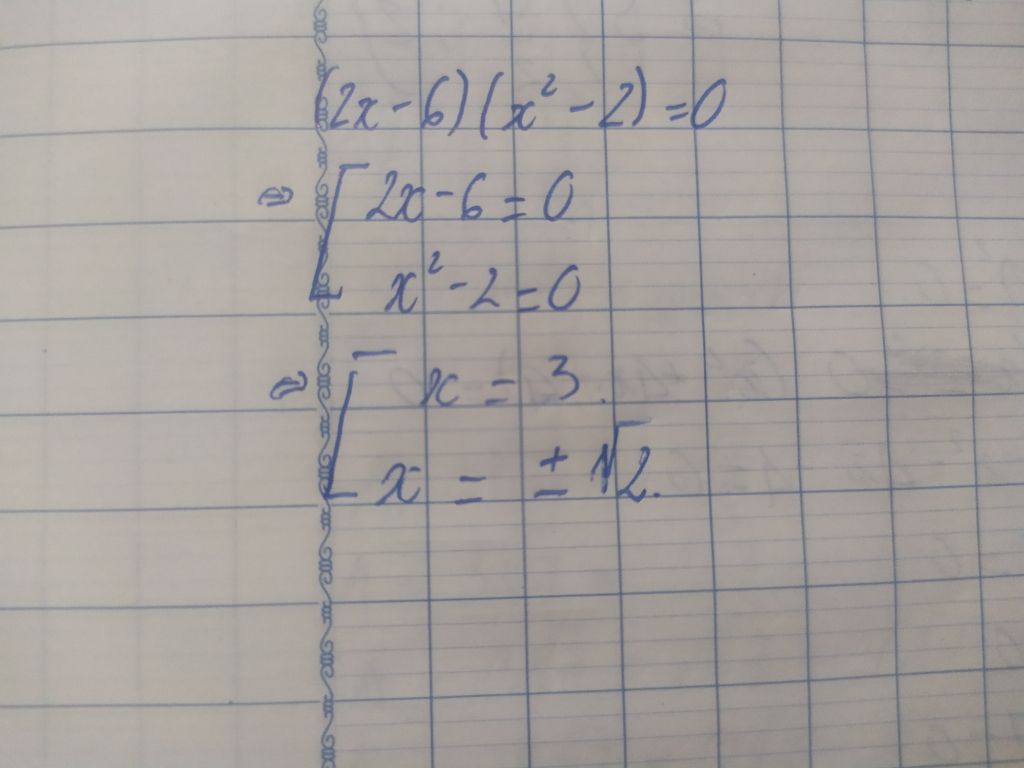 (2x - 6)(x² - 2) = 0
⇒ [ 2x - 6 = 0
x² - 2 = 0
⇒ [ x = 3.
x = ± √2.